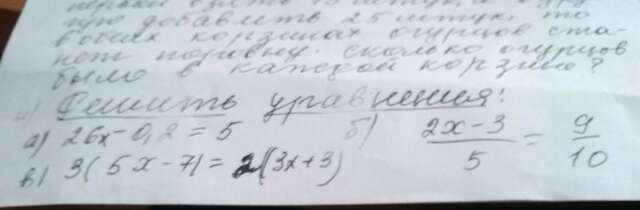 добавить 25 штук, то
в обеих корзинах огурцов ста-
нет поровну. Сколько огурцов
было в каждой корзине?
Решить уравнения:
а) 26x - 0,2 = 5 б) (2x-3)/5 = 9/10
в) 3(5x-7) = 2(3x+3)